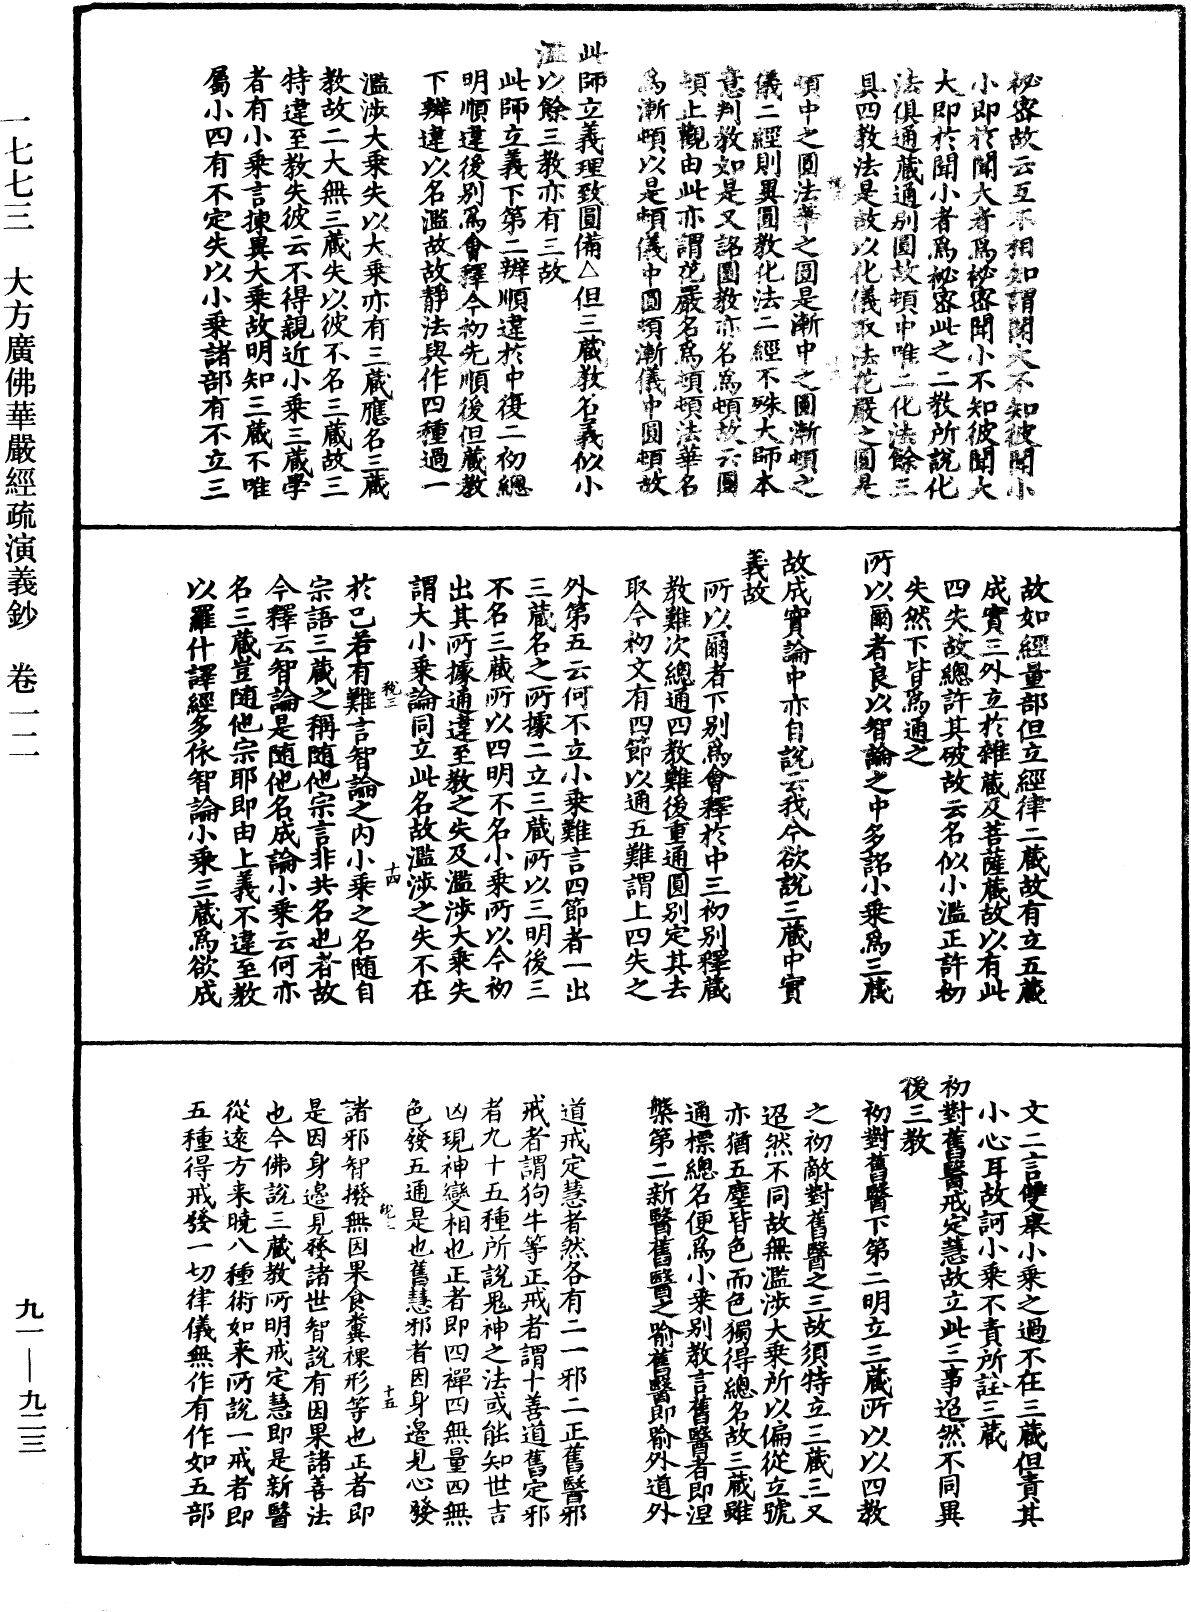 祕密故云互不相知謂聞大不知彼聞小
小即於聞大者爲祕密聞小不知彼聞大
大即於聞小者爲祕密此之二教所說化
法俱通藏通別圓故頓中唯二化法餘三
具四教法是故以化儀取法花嚴之圓是
頓中之圓法華之圓是漸中之圓漸頓之
儀二經則異圓教化法二經不殊大師本
意判教如是又詺圓教亦名爲頓故云圓
頓止觀由此亦謂花嚴名爲頓頓法華名
爲漸頓以是頓儀中圓頓漸儀中圓頓故
此師立義理致圓備△但三藏教名義似小
濫以餘三教亦有三故
此師立義下第二辨順違於中復二初總
明順違後別爲會釋今初先順後但藏教
下辨違以名濫故故靜法與作四種過一
濫涉大乘失以大乘亦有三藏應名三藏
教故二大無三藏失以彼不名三藏故三
特違至教失彼云不得親近小乘三藏學
者有小乘言揀異大乘故明知三藏不唯
屬小四有不定失以小乘諸部有不立三
故如經量部但立經律二藏故有立五藏
成實三外立於雜藏及菩薩藏故以有此
四失故總許其破故云名似小濫正許初
失然下皆爲通之
所以爾者良以智論之中多詺小乘爲三藏
故成實論中亦自說云我今欲說三藏中實
義故
所以爾者下別爲會釋於中三初別釋藏
教難次總通四教難後重通圓別定其去
取今初文有四節以通五難謂上四失之
外第五云何不立小乘難言四節者一出
三藏名之所據二立三藏所以三明後三
不名三藏所以四明不名小乘所以今初
出其所據通違至教之失及濫涉大乘失
謂大小乘論同立此名故濫涉之失不在
十四
稅三
於己若有難言智論之內小乘之名隨自
宗語三藏之稱隨他宗言非共名也者故
今釋云智論是隨他名成論小乘云何亦
名三藏豈隨他宗耶即由上義不違至教
以羅什譯經多依智論小乘三藏爲欲成
文二言雙舉小乘之過不在三藏但責其
小心耳故訶小乘不責所詮三藏
初對舊醫戒定慧故立此三事迢然不同異
後三教
初對舊醫下第二明立三藏所以以四教
之初敵對舊醫之三故須特立三藏三又
迢然不同故無濫涉大乘所以偏從立號
亦猶五塵皆色而色獨得總名故三藏雖
通標總名便爲小乘別教言舊醫者即涅
槃第二新醫舊醫之喻舊醫即喻外道外
道戒定慧者然各有二一邪二正舊醫邪
戒者謂狗牛等正戒者謂十善道舊定邪
者九十五種所說鬼神之法或能知世吉
凶現神變相也正者即四禪四無量四無
色發五通是也舊慧邪者因身邊見心發
十五
諸邪智撥無因果食糞裸形等也正者即
是因身邊見發諸世智說有因果諸善法
也今佛說三藏教所明戒定慧即是新醫
從遠方来曉八種術如来所說一戒者即
五種得戒發一切律儀無作有作如五部
一七七三　大方廣佛華嚴經疏演義鈔　卷一二
九一—九二三